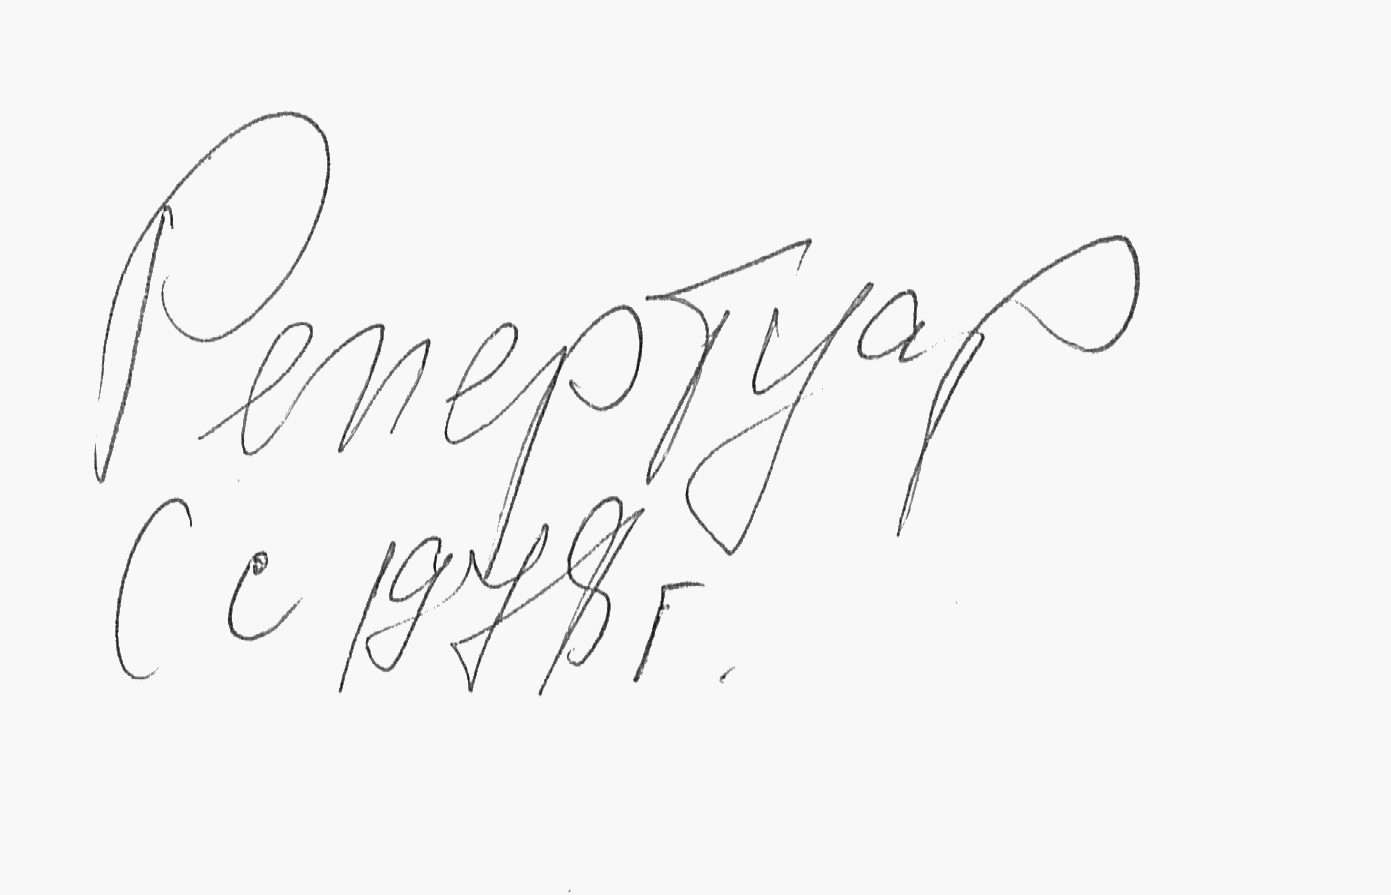 Репертуар
(с 1978 г.